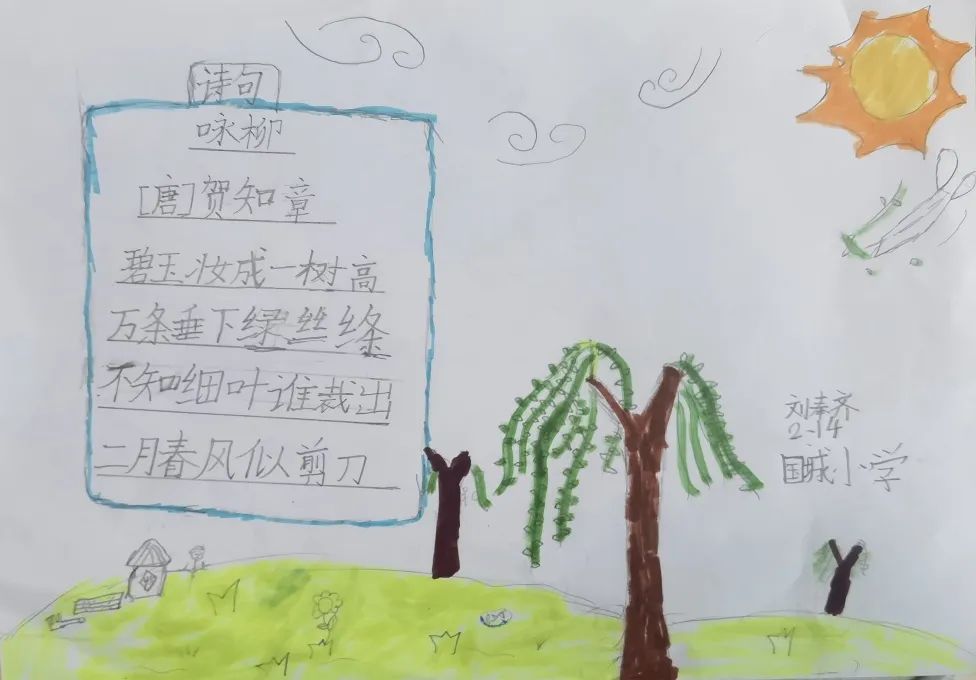 诗句
咏柳
[唐]贺知章
碧玉妆成一树高
万条垂下绿丝绦
不知细叶谁裁出
二月春风似剪刀
刘秦齐
2-14
国城小学